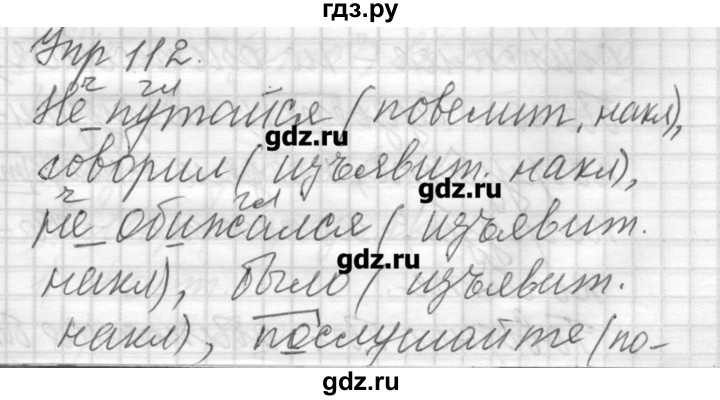 гдз.ру
Упр 112.
ч гл
Не путайся (повелит. накл),
gdz.ru
говорил (изъявит. накл),
gdz.ru
ч гл
не обижался (изъявит.
gdz.ru
накл), было (изъявит.
накл), послушайте (по-
gdz.ru